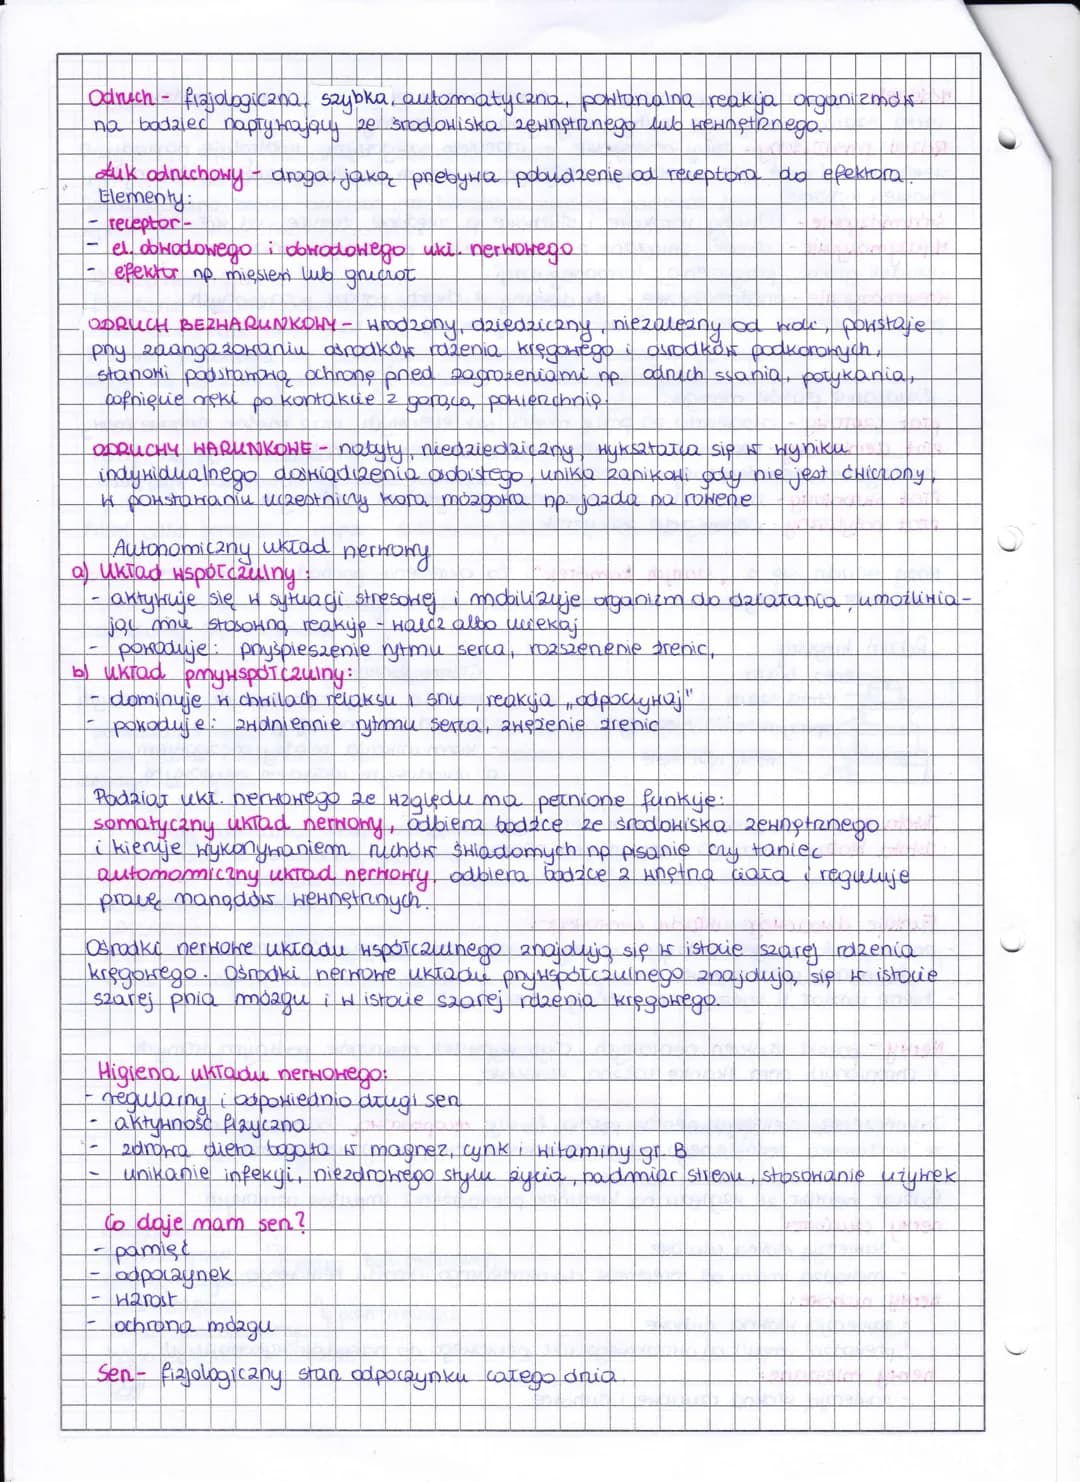 Odruch - fizjologiczna, szybka, automatyczna, powtarzalna reakcja organizmów
na bodziec napływający ze środowiska zewnętrznego lub wewnętrznego.
Łuk odruchowy - droga, jaką przebywa pobudzenie od receptora do efektora.
Elementy:
- receptor -
- el. obwodowego i obwodowego ukł. nerwowego
- efektor np. mięsień lub gruczoł
ODRUCH BEZWARUNKOWY - wrodzony, dziedziczny, niezależny od woli, powstaje
przy zaangażowaniu ośrodków rdzenia kręgowego i ośrodków podkorowych,
stanowi podstawową ochronę przed zagrożeniami np. odruch ssania, połykania,
cofnięcie ręki po kontakcie z gorącą powierzchnią.
ODRUCHY WARUNKOWE - nabyty, niedziedziczny, wykształca się w wyniku
indywidualnego doświadczenia osobistego, unika zanikowi gdy nie jest ćwiczony,
w powstawaniu uczestniczy kora mózgowa np. jazda na rowerze
Autonomiczny układ nerwowy
a) Układ współczulny:
- aktywuje się w sytuacji stresowej i mobilizuje organizm do działania, umożliwia-
jąc mu stosowną reakcję - walcz albo uciekaj
- powoduje: przyśpieszenie rytmu serca, rozszerzenie źrenic,
b) układ przywspółczulny:
- dominuje w chwilach relaksu i snu, reakcja „odpoczywaj"
- powoduje: zwolnienie rytmu serca, zwężenie źrenic
Podział ukł. nerwowego ze względu ma pełnione funkcje:
somatyczny układ nerwowy, odbiera bodźce ze środowiska zewnętrznego
i kieruje wykonywaniem ruchów świadomych np pisanie czy taniec
automomiczny układ nerwowy, odbiera bodźce z wnętrza ciała i reguluje
pracę narządów wewnętrznych.
Ośrodki nerwowe układu współczulnego znajdują się w istocie szarej rdzenia
kręgowego. Ośrodki nerwowe układu przywspółczulnego znajdują się w istocie
szarej pnia mózgu i w istocie szarej rdzenia kręgowego.
Higiena układu nerwowego:
- regularny i odpowiednio długi sen
- aktywność fizyczna
- zdrowa dieta bogata w magnez, cynk i witaminy gr. B
- unikanie infekcji, niezdrowego stylu życia, nadmiar stresu, stosowanie używek
Co daje mam sen?
- pamięć
- odpoczynek
- wzrost
- ochrona mózgu
Sen - fizjologiczny stan odpoczynku całego dnia